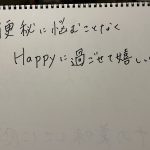 便秘に悩むことなく
Happyに過ごせて嬉しい